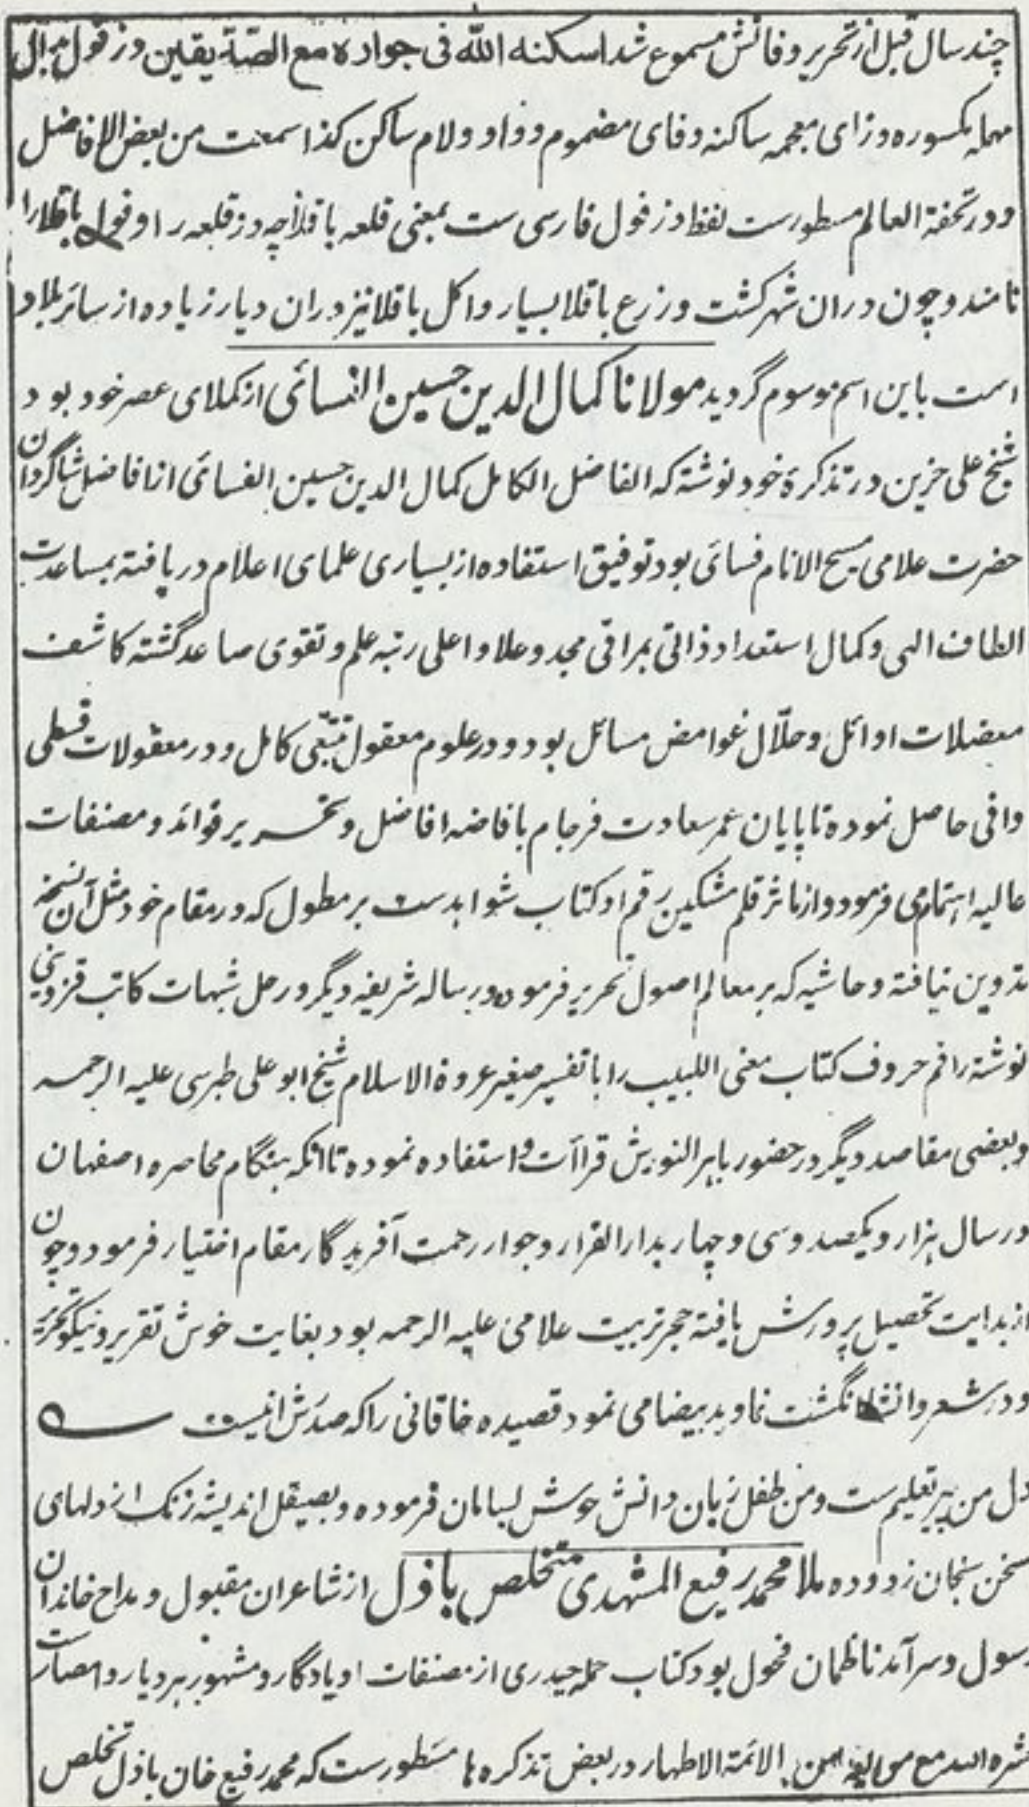 چند سال قبل از تحریر وفاتش مسموع شد اسکنه الله فی جواده مع الصدیقین و دزفول بدال
مهمله مکسوره و زای معجمه ساکنه و فای مضموم و واو و لام ساکن کذا سمعت من بعض الافاضل
و در تحفة العالم مسطورست لفظ دزفول فارسی ست بمعنی قلعه باقلا چه دز قلعه را و فول باقلا را
نامند و چون دران شهر کشت و زرع باقلا بسیار و اکل باقلا نیز دران دیار زیاده از سائر بلاد
است باین اسم موسوم گردید مولانا کمال الدین حسین الفسائی از کملای عصر خود بود
شیخ علی حزین در تذکرهٔ خود نوشته که الفاضل الکامل کمال الدین حسین الفسائی از افاضل شاگردان
حضرت علامی مسیح الانام فسائی بود توفیق استفاده از بسیاری علمای اعلام دریافته بمساعدت
الطاف الهی و کمال استعداد ذاتی بمراقی مجد و علا و اعلی رتبه علم و تقوی صاعد گشته کاشف
معضلات اوائل و حلّال غوامض مسائل بود و در علوم معقول تتبّعی کامل و در معقولات قسطی
وافی حاصل نموده تا پایان عمر سعادت فرجام بافاضه افاضل و تحریر فوائد و مصنفات
عالیه اهتمام می فرمود و از مآثر قلم مشکین رقم او کتاب شواهدست بر مطول که در مقام خود مثل آن نسخه
تدوین نیافته و حاشیه که بر معالم اصول تحریر فرموده و رساله شریفه دیگر در حل شبهات کاتب قزوینی
نوشته راقم حروف کتاب مغنی اللبیب را با تفسیر صغیر عروة الاسلام شیخ ابو علی طبرسی علیه الرحمه
و بعضی مقاصد دیگر در حضور باهر النورش قراأت و استفاده نموده تا آنکه بهنگام محاصره اصفهان
در سال هزار و یکصد و سی و چهار بدار القرار و جوار رحمت آفریدگار مقام اختیار فرمود و چون
از بدایت تحصیل پرورش یافته حجر تربیت علامی علیه الرحمه بود بغایت خوش تقریر و نیکو تحریر
و در شعر و انشا انگشت نما و ید بیضا می نمود قصیده خاقانی را که صدرش اینست
دل من پیر تعلیم ست و من طفل زبان دانش خوش بسامان فرموده و بصیقل اندیشه زنگ از دلهای
سخن سنجان زدوده ملا محمد رفیع المشهدی متخلص باذل از شاعران مقبول و مداح خاندان
رسول و سرآمد ناظمان فحول بود کتاب حمله حیدری از مصنفات او یادگار و مشهور هر دیار و امصارست
حشره الله مع موالیه من الائمة الاطهار در بعض تذکره ها مسطورست که محمد رفیع خان باذل تخلص